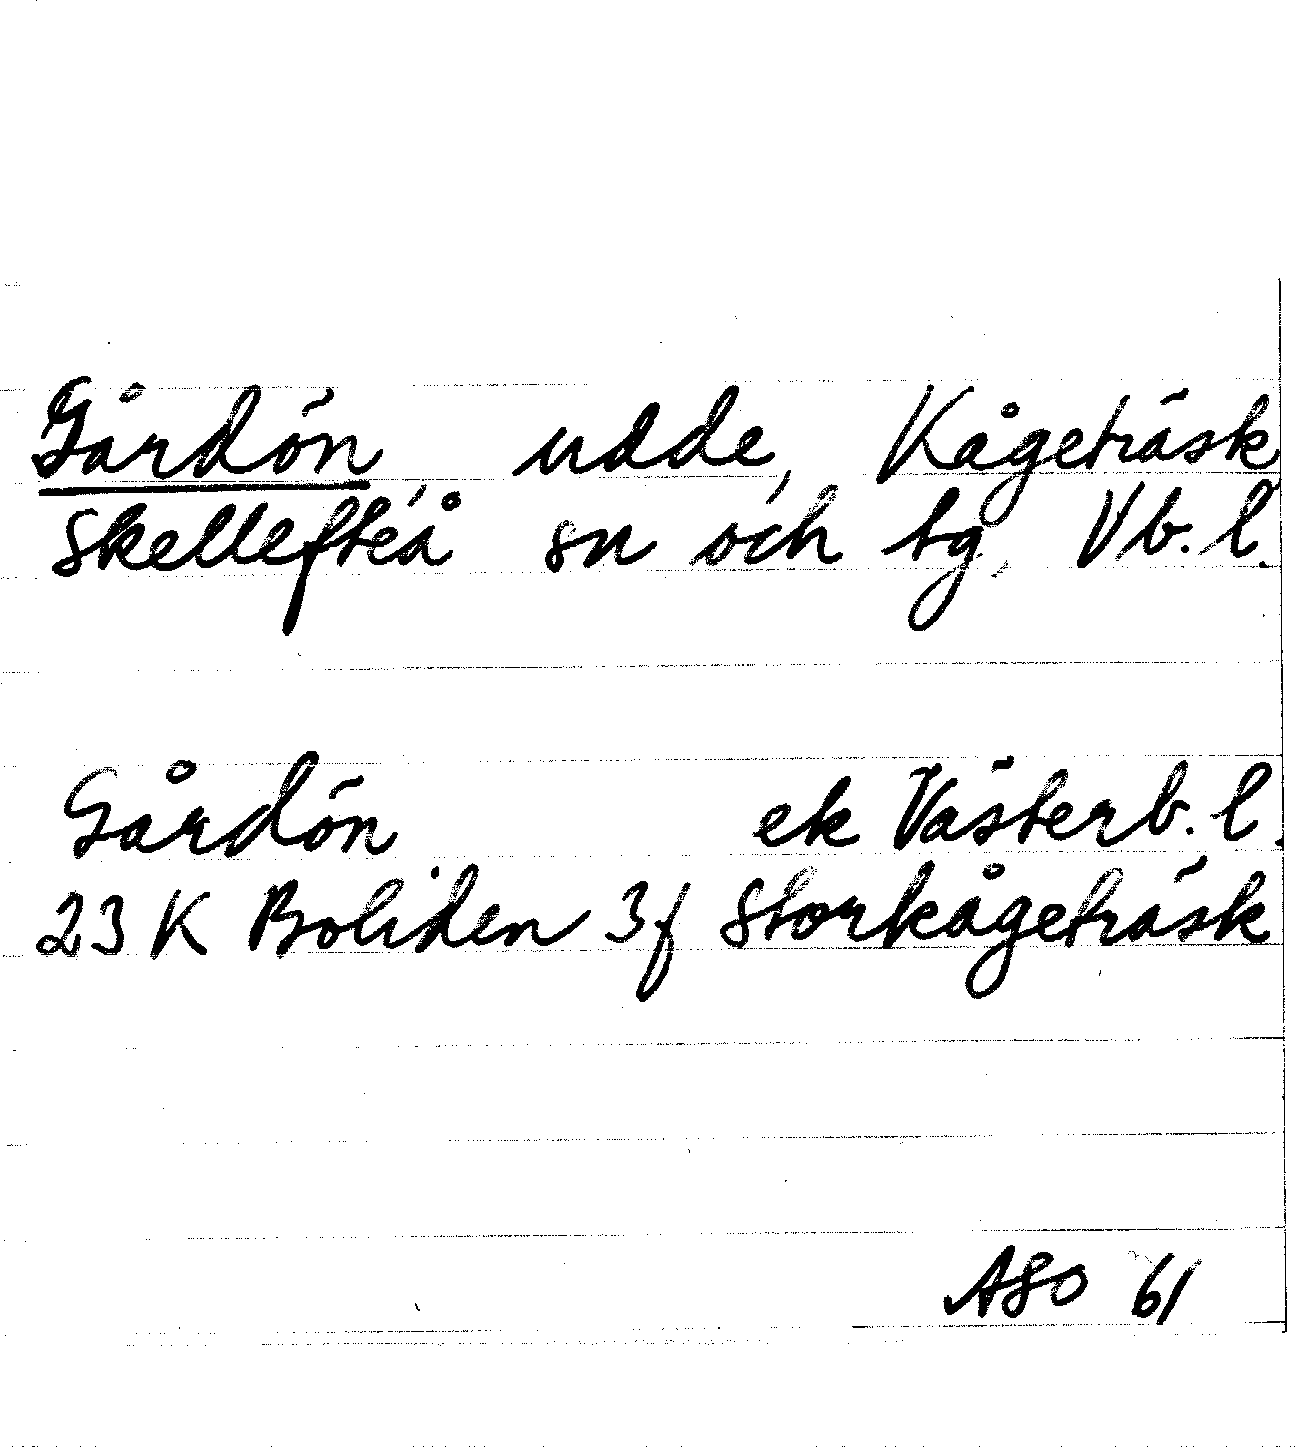 Gårdön, udde, Kågeträsk
Skellefteå sn och tg, Vb. l.
Gårdön ek Västerb. l.
23 K Boliden 3f Storkågeträsk
ASO 61